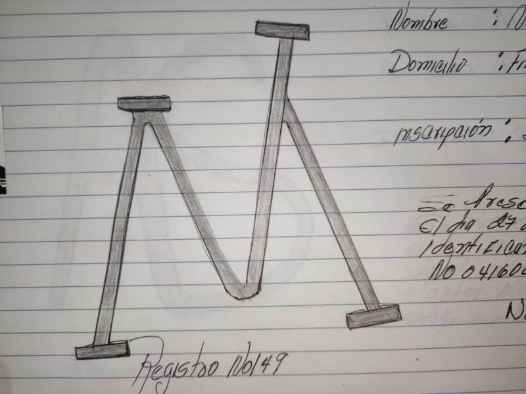 Nombre :
Domicilio :
Inscripción :
Se Prese
El día 27
Identificac
No 041600
Registro No 149